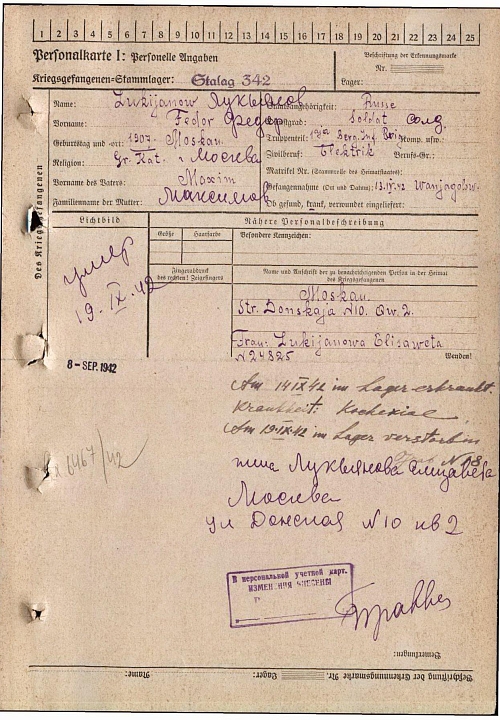 1 2 3 4 5 6 7 8 9 10 11 12 13 14 15 16 17 18 19 20 21 22 23 24 25
Personalkarte I: Personelle Angaben
Kriegsgefangenen-Stammlager: Stalag 342
Beschriftung der Erkennungsmarke
Nr.
Lager:
Des Kriegsgefangenen
Name: Lukijanow Лукьянов
Staatsangehörigkeit: Russe
Vorname: Fedor Федор
Dienstgrad: Soldat солд.
Geburtstag und -ort: 1907. Moskau
Truppenteil: Komp. usw.:
Religion: Gr. Kat. Москва
Zivilberuf: Elektrik Berufs-Gr.:
Vorname des Vaters: Maxim
Matrikel Nr. (Stammrolle des Heimatstaates):
Familienname der Mutter: Максимов
Gefangennahme (Ort und Datum): 13.IV.42
Ob gesund, krank, verwundet eingeliefert:
Lichtbild
Nähere Personalbeschreibung
Größe Haarfarbe
Besondere Kennzeichen:
Fingerabdruck
des rechten! Zeigefingers
Name und Anschrift der zu benachrichtigenden Person in der Heimat
des Kriegsgefangenen
умер
19.IX.42
Moskau.
Str. Donskaja N10. Qw. 2.
Frau: Lukijanowa Elisaweta
N 24825
Wenden!
8-SEP. 1942
Am 14 IX 42 im Lager erkrankt.
Krankheit:
Am 19.IX.42 im Lager verstorben
Лукьянова Елизавета
Москва
ул Донская N10 кв 2
В персональной учетной карт.
ИЗМЕНЕНИЯ ВНЕСЕНЫ
Bemerkungen:
Beschriftung der Erkennungsmarke Nr. Lager: Name: